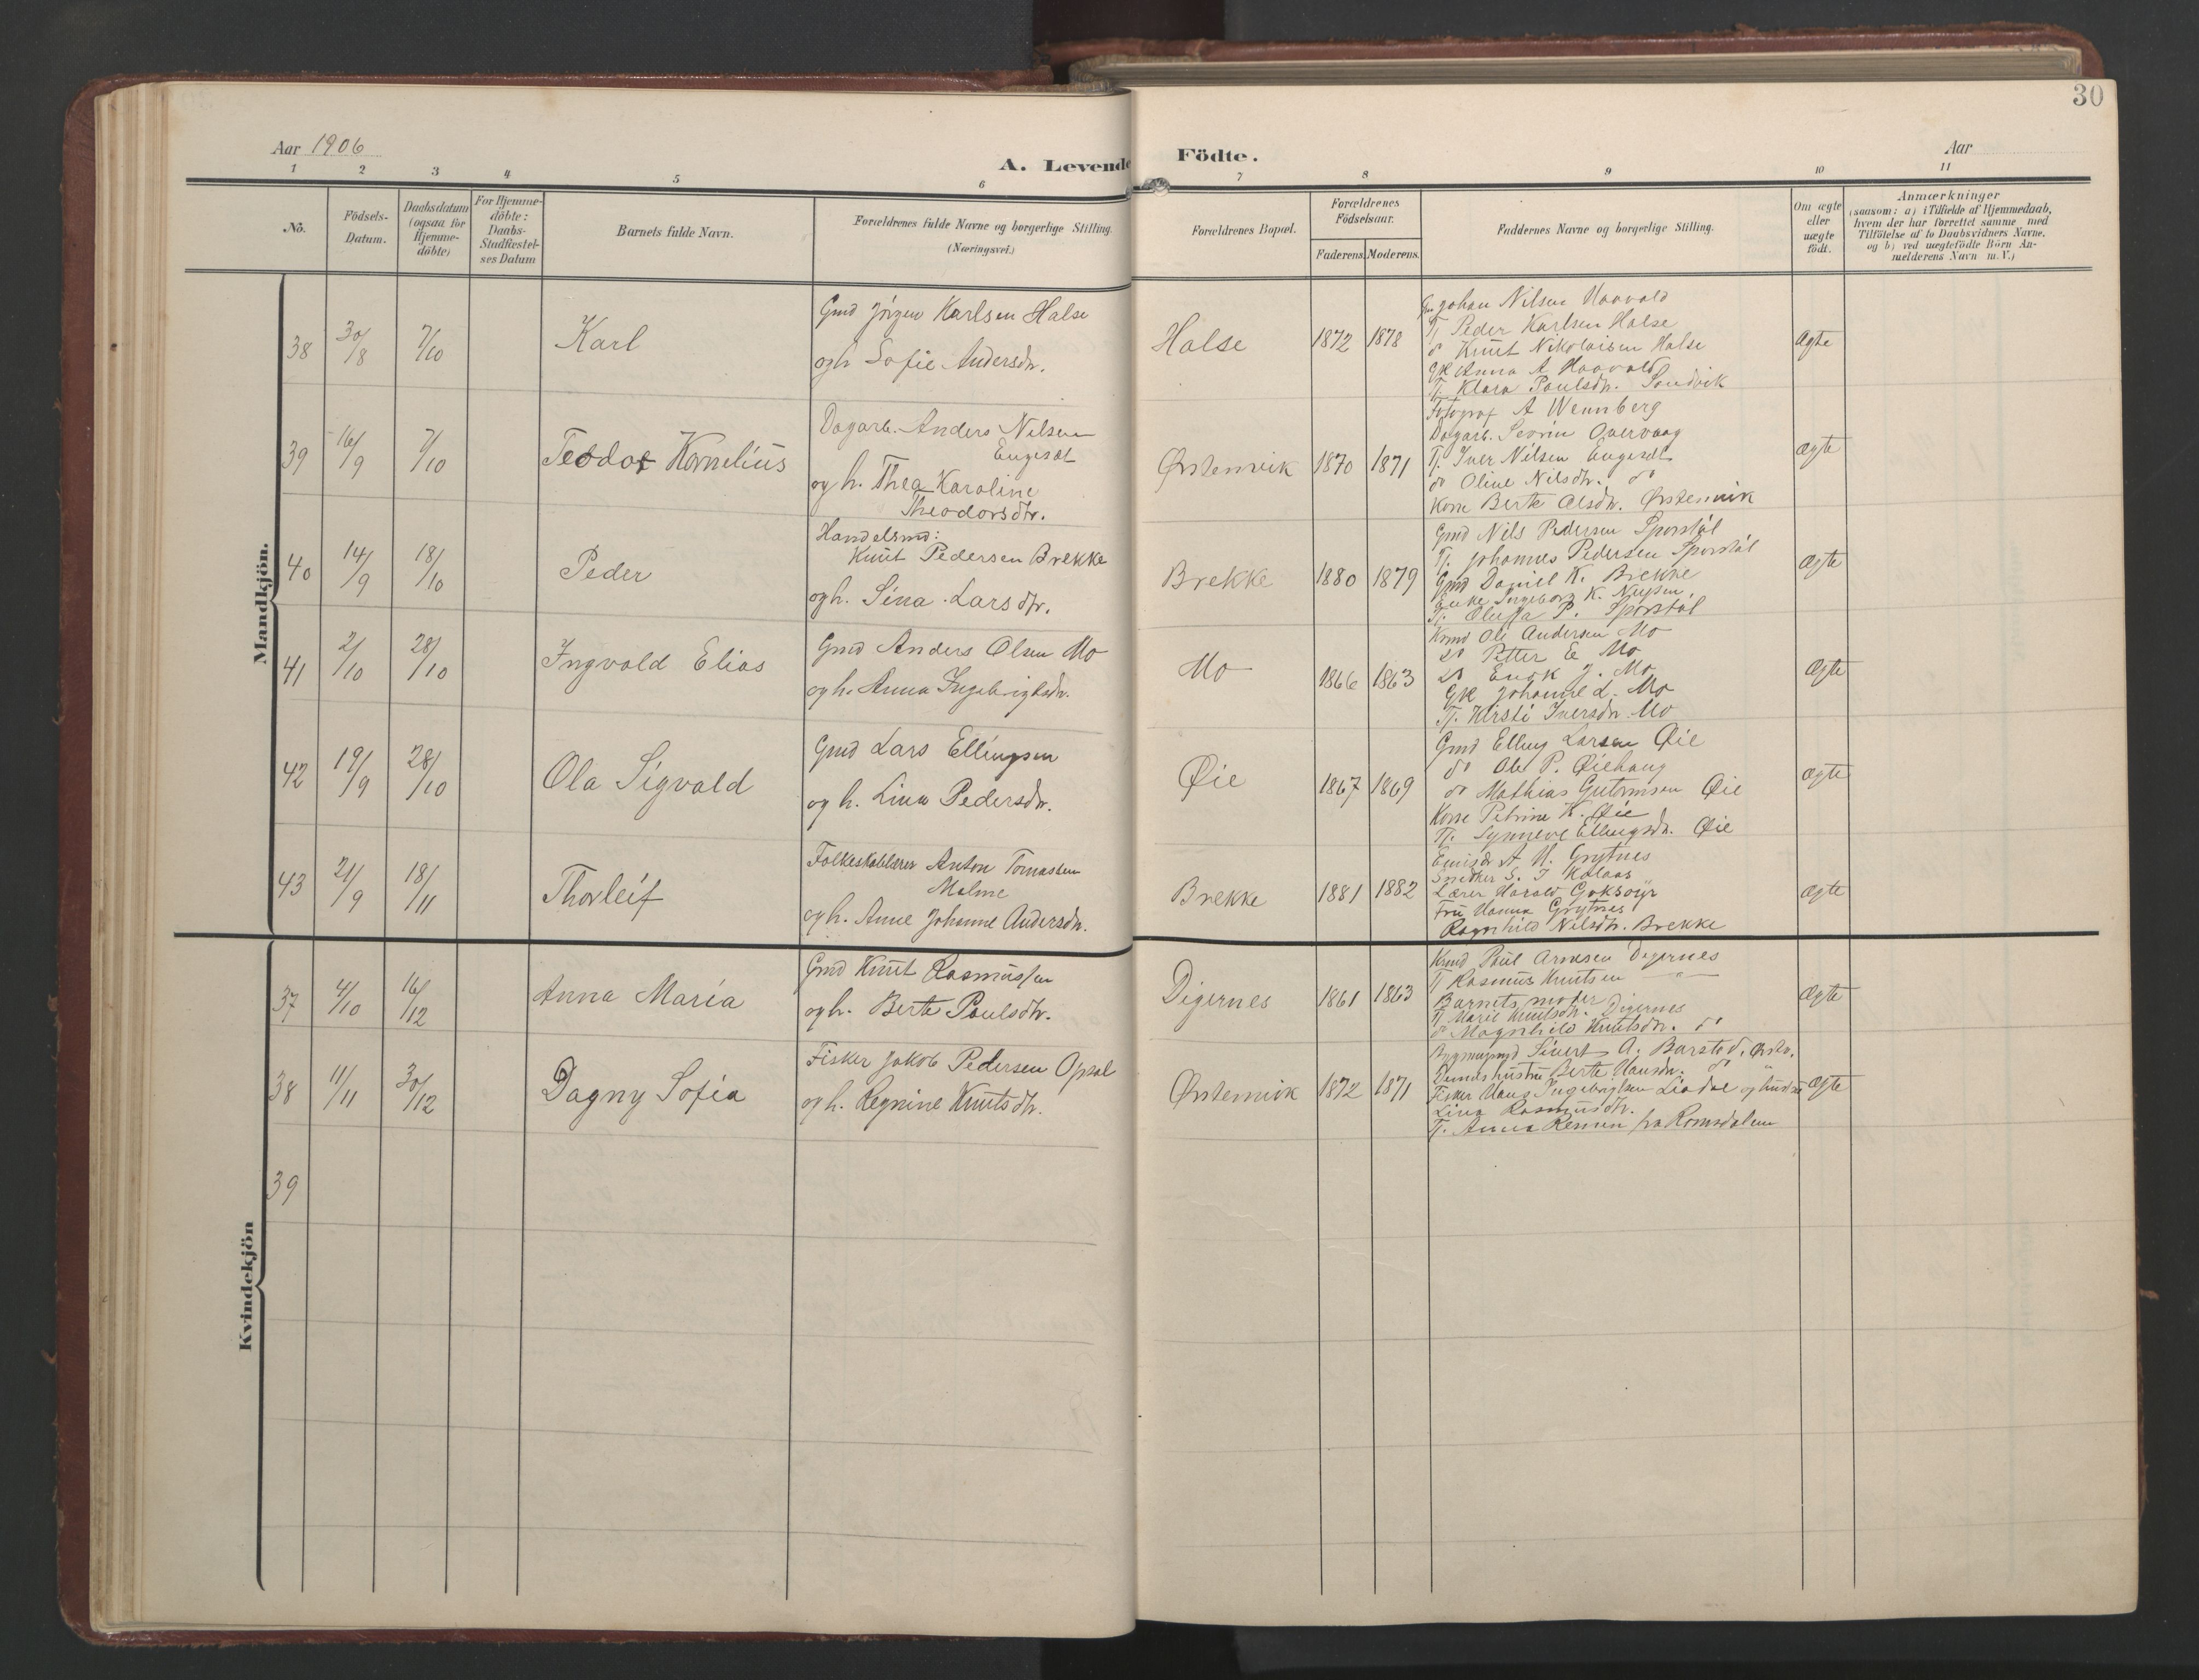 30
Aar 1906
A. Levende Födte.
Aar
1 2 3 4 5 6 7 8 9 10 11
No.
Födsels-
Datum.
Daabsdatum
(ogsaa for
Hjemme-
döbte)
For Hjemme-
döbte:
Daabs-
Stadfæstel-
ses Datum
Barnets fulde Navn.
Forældrenes fulde Navne og borgerlige Stilling.
(Næringsvei.)
Forældrenes Bopæl.
Forældrenes
Födselsaar.
Faderens. Moderens.
Faddernes Navne og borgerlige Stilling.
Om ægte
eller
uægte
födt.
Anmærkninger
(saasom: a) i Tilfælde af Hjemmedaab,
hvem der har forrettet samme med
Tilföielse af to Daabsvidners Navne.
og b) ved uægtefödte Börn An-
melderens Navn m. V.)
Mandkjön.
38 30/8 7/10 Karl
Gmd Jörgen Karlsen Halse
og h. Sofie Andersdr.
Halse 1872 1878
Johan Nilsen Haavald
Tj Peder Karlsen Halse
do Knut Nikolaisen Halse
Gk Anna A Haavald
Tj. Klara Paulsdr. Sandvik
Ægte
39 16/9 7/10 Teodor Kornelius
Dagarb. Anders Nilsen
Engeset
og h. Thea Karoline
Theodorsdtr.
Ørstenvik 1870 1871
Fotograf A Wennberg
Dagarb. Sevrin Overvaag
Tj. Iver Nilsen Engeset
do Oline Nilsdtr. do
Kone Berte Olsdtr. Ørstenvik
Ægte
40 14/9 18/10 Peder
Handelsmd:
Knut Pedersen Brekke
og h. Sina Larsdtr.
Brekke 1880 1879
Gmd Nils Pedersen Sporstøl
Tj. Johannes Pedersen Sporstøl
Gmd Daniel K. Brekke
Enke Ingeborg K.
Tj. P. Sporstøl
Ægte
41 2/10 28/10 Ingvald Elias
Gmd Anders Olsen Mo
og h. Anna Ingebrigtsdr.
Mo 1866 1863
Kmd Ole Andersen Mo
do Petter E Mo
do J. Mo
Gk Johanne L. Mo
Tj. Kirsti Iversdr. Mo
Ægte
42 19/9 28/10 Ola Sigvald
Gmd Lars Ellingsen
og h. Lina Pedersdr.
Øie 1867 1869
Gmd Elling Larsen Øie
do Ole P. Øiehaug
do Mathias Gutormsen Øie
Kone Petrine K. Øie
Tj. Synneve Ellingsdr. Øie
Ægte
43 21/9 18/11 Thorleif
Folkeskolelærer Anton Tomassen
Malme
og h. Anne Johanne Andersdr.
Brekke 1881 1882
A H. Grytnes
Snedker S. J Kalaas
Lærer Harald Goksøyr
Fru Hanna Grytnes
Ragnhild Nilsdtr. Brekke
Ægte
Kvindekjön
37 4/10 16/12 Anna Maria
Gmd Knut Rasmussen
og h. Berte Paulsdtr.
Digernes 1861 1863
Kmd Paul Arnesen Digernes
Tj Rasmus Knutsen — " —
Barnets moder
Tj Marie Knutsdtr. Digernes
do Magnhild Knutsdtr. do
Ægte
38 11/11 30/12 Dagny Sofia
Fisker Jakob Pedersen Opsal
og h. Regnine Knutsdtr.
Ørstenvik 1872 1871
Sivert A. Barstad. Ørstv.
hustru Berte Hansdr. do
Fisker Hans Ingebrigtsen Liadal og hustru
Lina Rasmusdtr.
Tj. Anna fra Romsdalen
Ægte
39